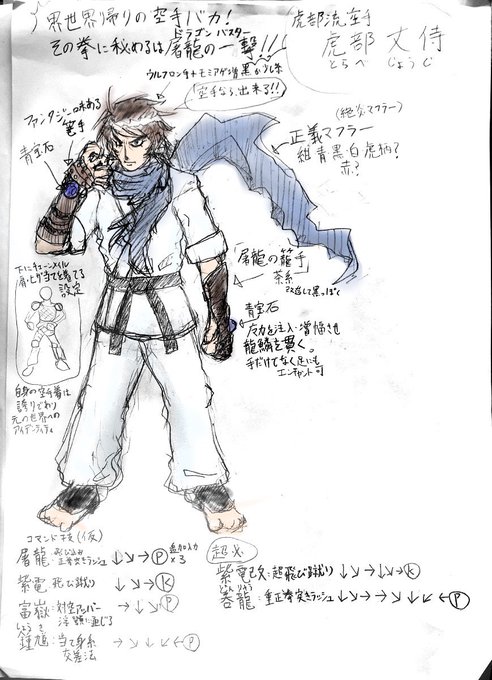 異世界帰りの空手バカ!
その拳に秘めるは屠龍の一撃!!
ドラゴン バスター
虎部流空手
虎部 丈侍
とらべ じょうじ
ウルフカット+モミアゲ
「空手なら、出来る!!」
ファンタジー味ある
篭手
青宝石
正義マフラー
紺 青 黒 白 虎柄?
赤?
「屠龍の籠手」
茶系
青宝石
龍鱗を貫く。
手だけでなく足にも
エンチャント可
下にチェーンメイル
肩・ヒザ当てを着てる
設定
自身の空手着は
誇りであり
元の世界への
アイデンティティ
コマンド技(仮)
屠龍:飛び込み
正拳突きラッシュ ↓↘→Ⓟ 追加入力
×3
紫電:飛び蹴り ↓↘→Ⓚ
富嶽:対空アッパー →↓↘Ⓟ
しょう き
鍾馗:当て身系
交差法
超必
紫電改:超飛び蹴り ↓↘→↓↘→Ⓚ
どんりゅう
呑龍:重正拳突きラッシュ